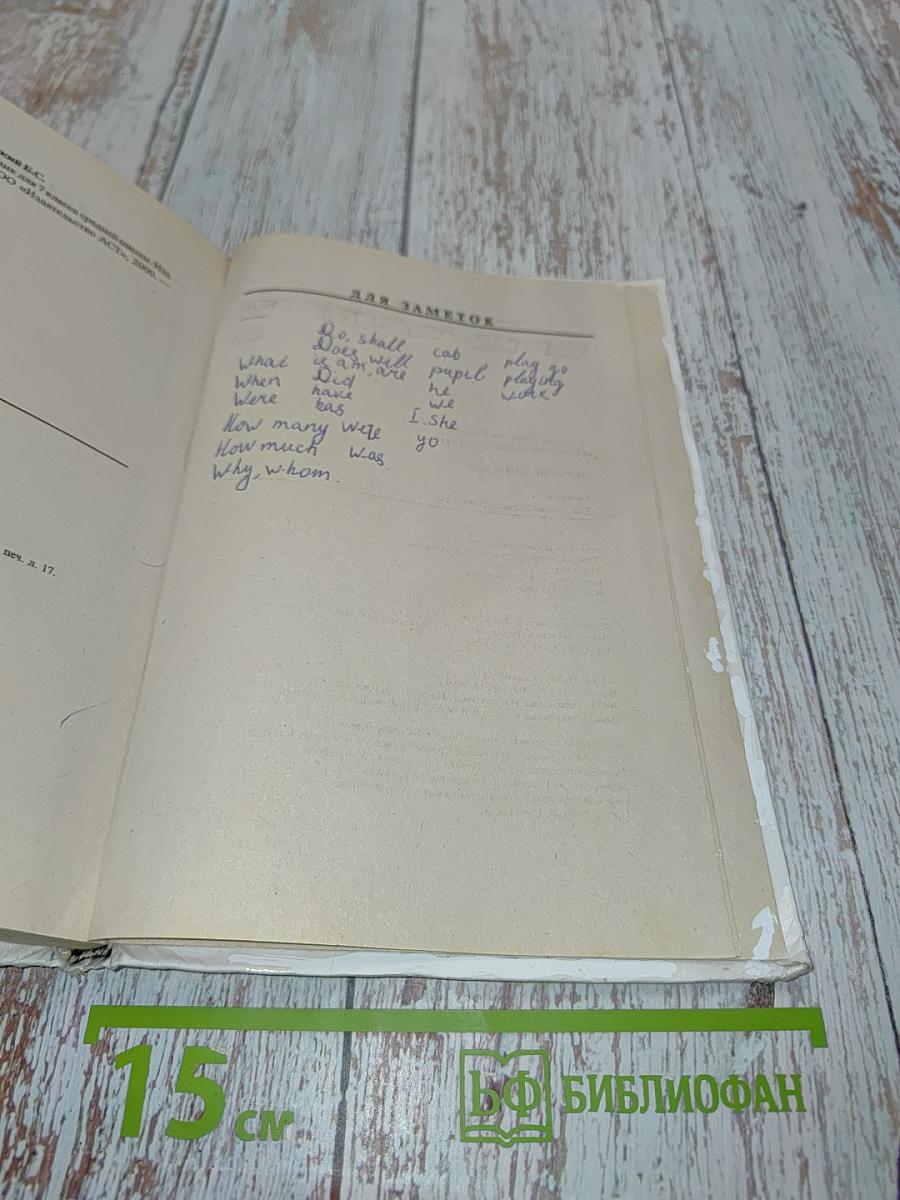 кий Б.С.
ник для 7 классов средней школы
ОО «Издательство АСТ», 2000.—
печ. л. 17.
ДЛЯ ЗАМЕТОК
Do, shall cab play go
Does will pupil playing
What is am, are he work
When Did we
Were have I. She
bas yo
How many were
How much was
Why, whom.
15 см
БФ БИБЛИОФАН